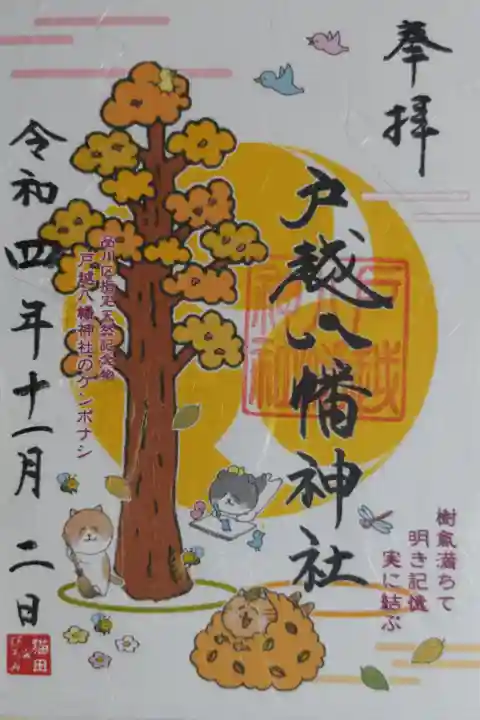 奉拝
戸越八幡神社
樹氣満ちて
明き記憶
実に結ぶ
品川区指定天然記念物
戸越八幡神社のケンポナシ
令和四年十一月二日
猫田